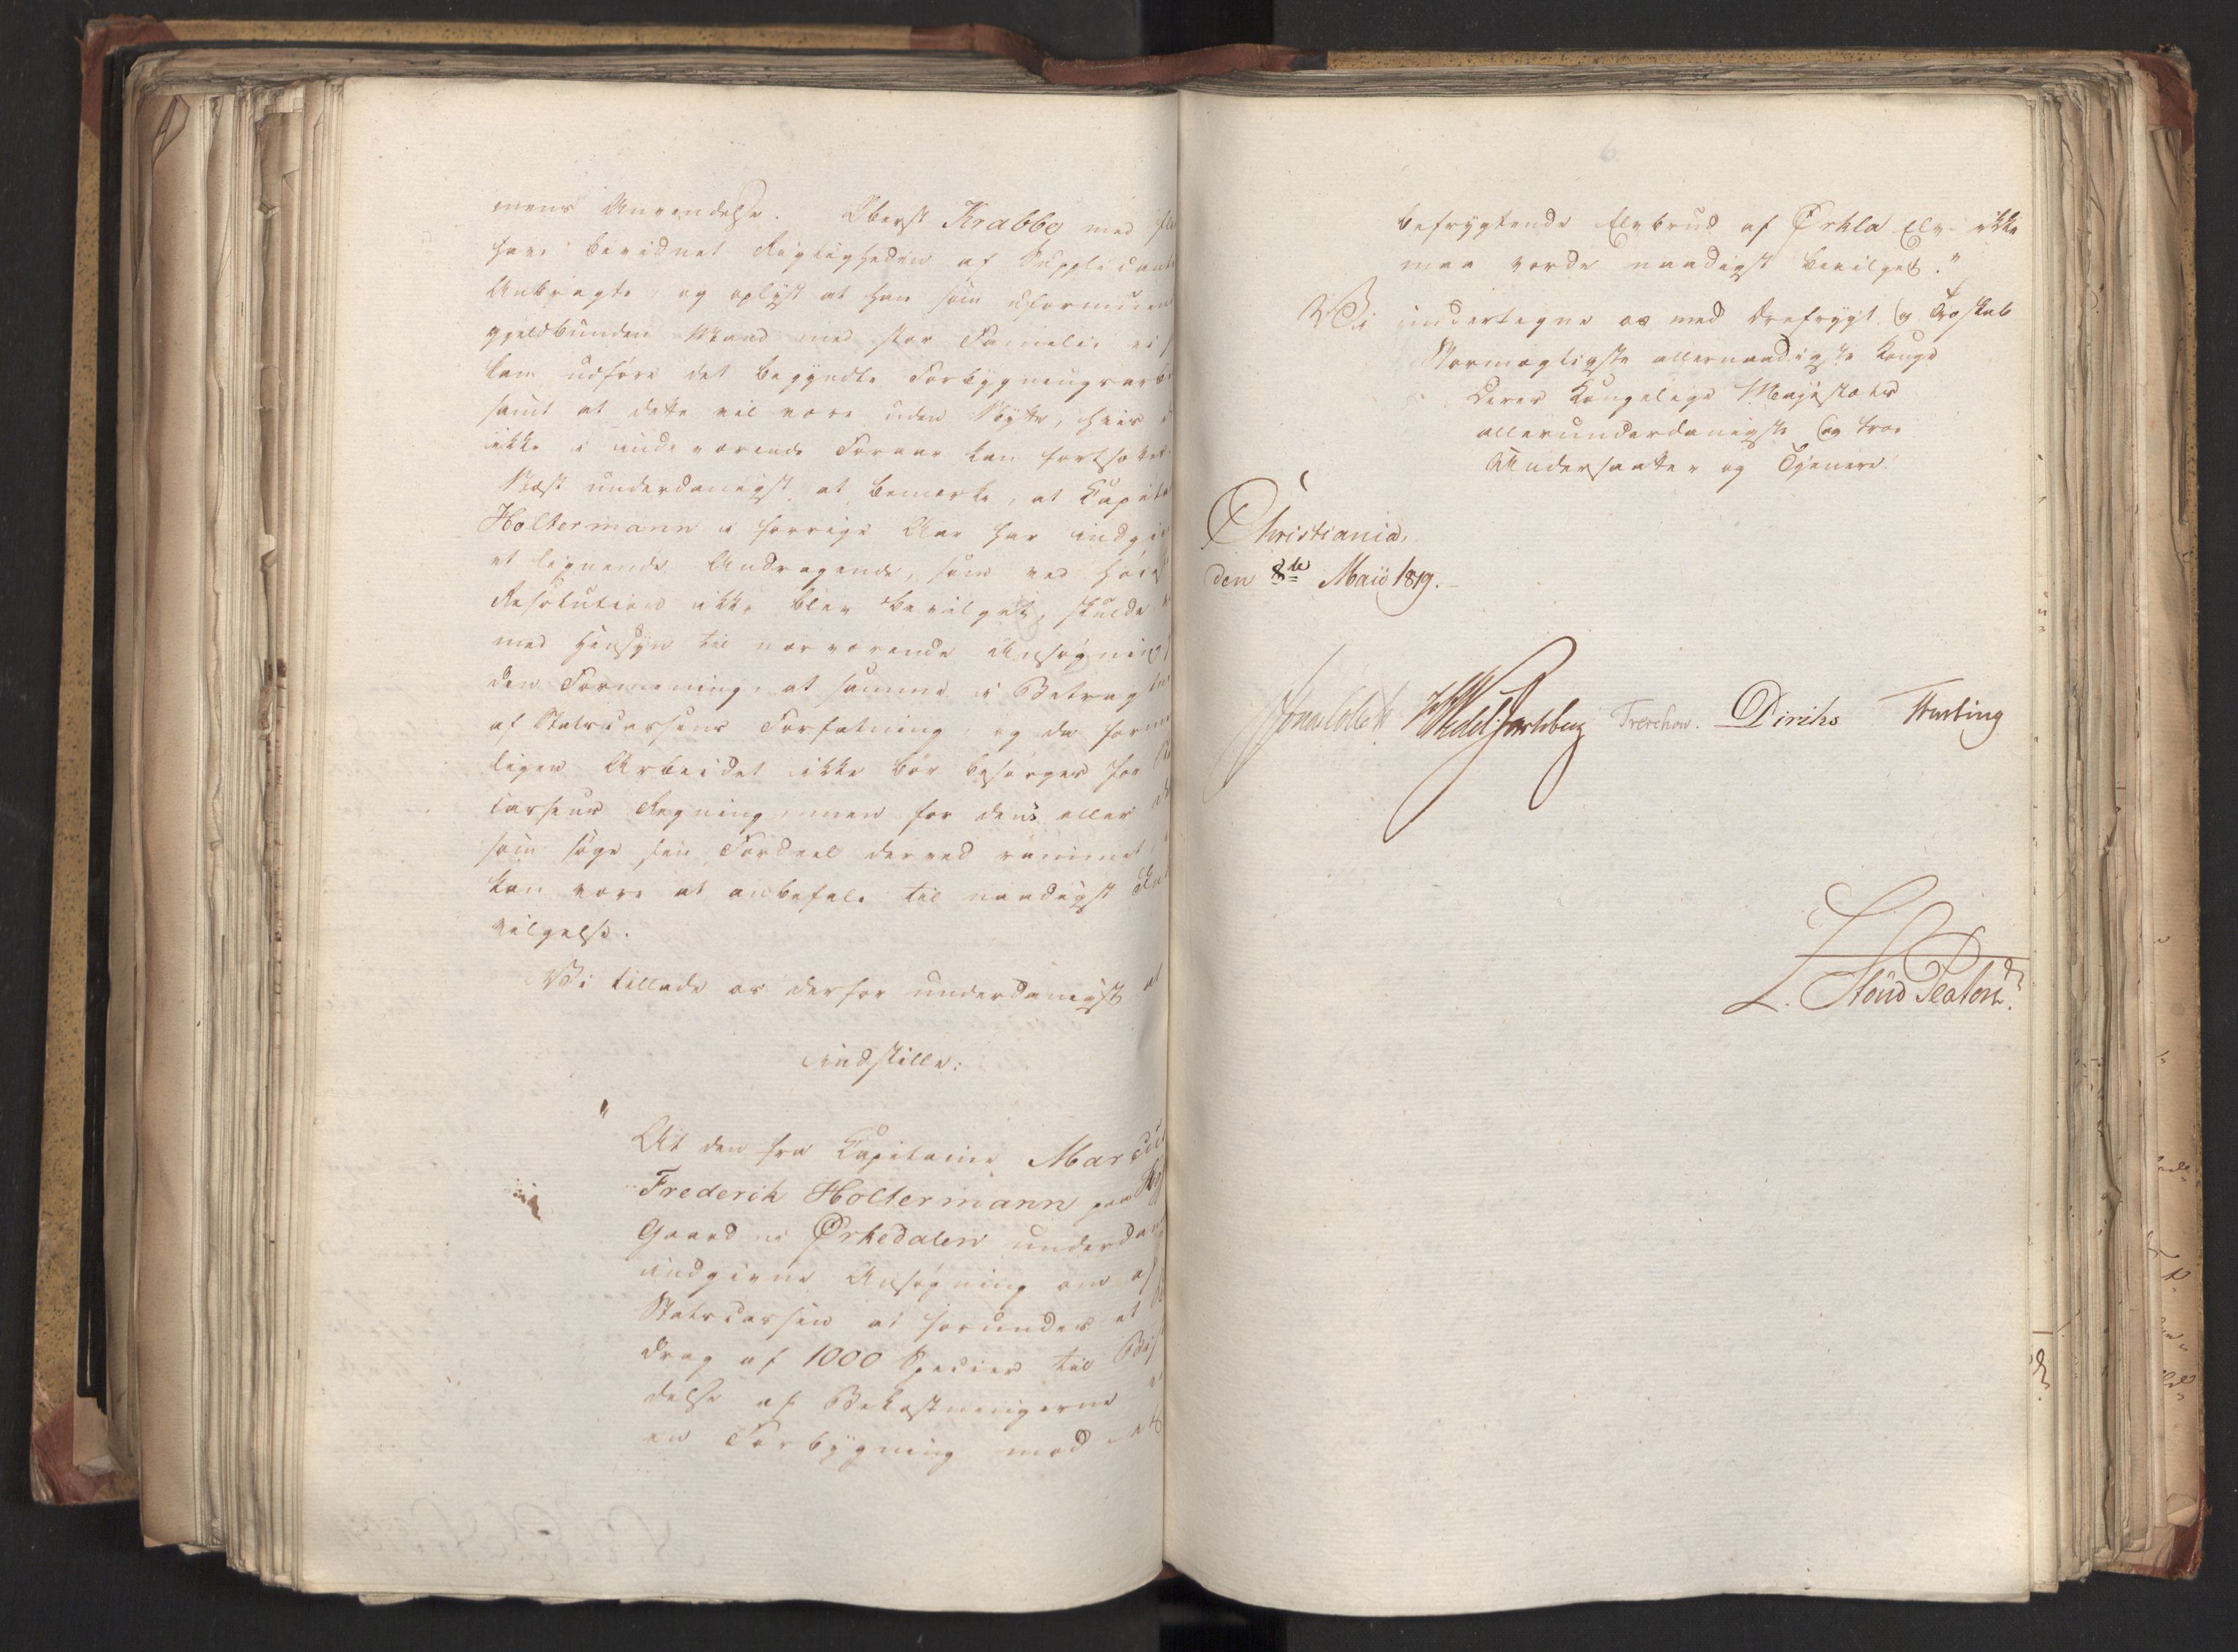 mens Anvendelse. Oberst Krabbe med
have bevidnet Rigtigheden af Supplicant
Anbragte, og oplyst at han som uformuen
gjeldbunden Mand med stor Familie ei
kan udføre det begyndte Forbygningsarbe
samt at dette vil være uden Nytte, hvis
ikke i indeværende Foraar kan fortsættes.
Næst underdanigst at bemærke, at Capita
Holtermann i forrige Aar har indgi
et lignende Andragende, som ved Høie
Resolution ikke blev bevilget, skulde
med Hensyn til nærværende Ansøgning
den Formening, at samme i Betragtn
af Statscassens Forfatning, og da form
ligen Arbeidet ikke bør besørges for
cassens Regning, men for dens eller
som søge sin Fordeel derved vunnet,
kan være at anbefale til naadigst
vilgelse.
Vi tillade os derfor underdanigst at
indstille:
"At den fra Capitaine Marcus
Frederik Holtermann paa
Gaard i Ørkedalen underdan
indgivne Ansøgning om af
Statscassen at forundes et
drag af 1000 Specier til
delse af Bekostningerne
en Forbygning mod et
befrygtende Elvbrud af Ørkla Elv ikke
maa vorde naadigst bevilget."
Vi undertegne os med Ærefrygt og Troskab
Stormægtigste allernaadigste Konge
Deres Kongelige Majestæts
allerunderdanigste og troe
Undersaatter og Tjenere
Christiania,
den 8de Maii 1819.
Jonas Collett HWedel Jarlsberg Treschow. Diriks Fasting
L. Stoud Platou